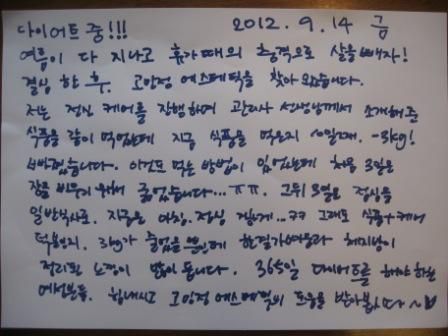 다이어트 중!!! 2012. 9. 14 금
여름이 다 지나고 휴가때의 충격으로 살을 빼자!
결심 한 후, 고안정 에스테틱을 찾아 왔습니다.
저는 전신 케어를 진행하며 관리사 선생님께서 소개해준
식품을 같이 먹었는데 지금 식품을 먹은지 10일째. -3kg!
빠졌습니다. 이것도 먹는 방법이 있었는데 처음 3일은
장을 비우기 위해 굶었습니다...ㅠㅠ. 그뒤 3일은 점심을
일반식사로. 지금은 아침. 점심 ...ㅋㅋ 그래도 식품+케어
덕분인지. 3kg가 줄었을 뿐인데 한결가벼움과 허리선이
정리된 느낌이 많이 듭니다. 365일 다이어트를 해야 하는
여성분들. 힘내시고 고안정 에스테틱의 도움을 받아봅시다~